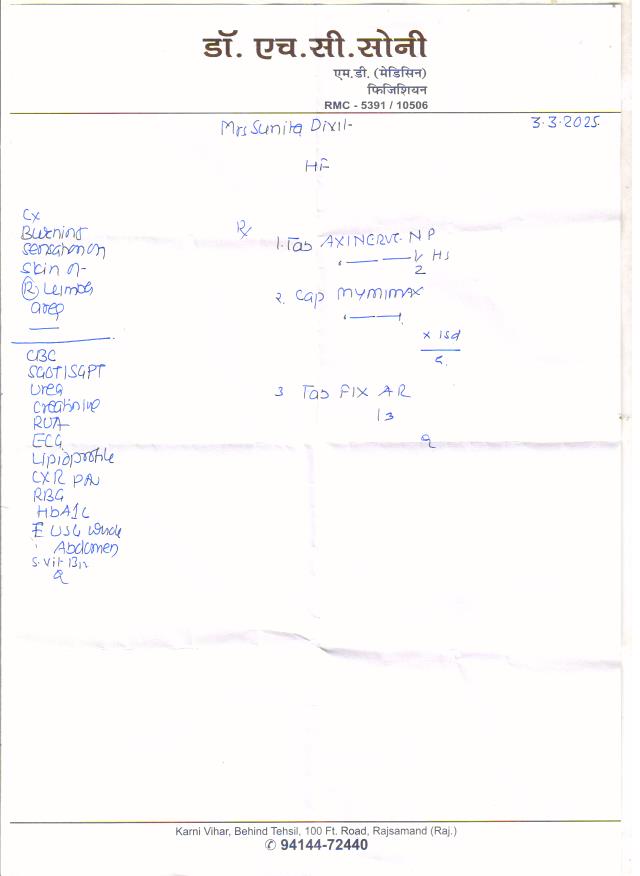 डॉ. एच.सी.सोनी
एम.डी. (मेडिसिन)
फिजिशियन
RMC - 5391 / 10506
Mrs Sunita 3.3.2025
HF
Cx
Burning
Sensation on
Skin
(R)
area
CBC
SGOT/SGPT
Urea
Creatinine
ECG
Lipid profile
CXR PA
RBG
HbA1c
USG Whole
Abdomen
S. Vit B12
Rx
1. Tab AXINERVE NP
1/2 HS
2. Cap MYMIMAX
x 15d
3 Tab FIX AR
Karni Vihar, Behind Tehsil, 100 Ft. Road, Rajsamand (Raj.)
✆ 94144-72440